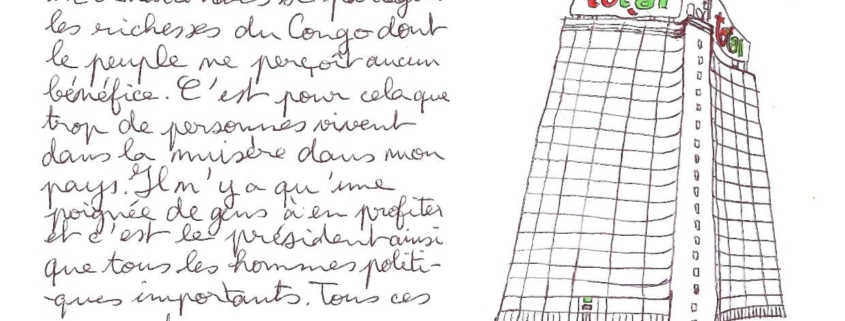 les richesses du Congo dont
le peuple ne perçoit aucun
bénéfice. C'est pour cela que
trop de personnes vivent
dans la misère dans mon
pays. Il n'y a qu'une
poignée de gens à en profiter
et c'est le président ainsi
que tous les hommes politi-
-ques importants. Tous ces
total
total